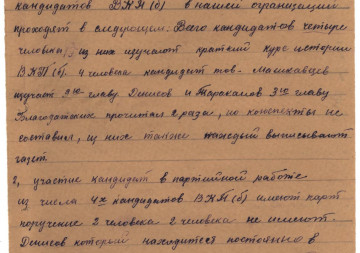 кандидатов ВКП(б) в нашей организации
проходит в следующем. Всего кандидатов четыре
человека, из них изучают краткий курс истории
ВКП(б). 4 человека кандидат тов. Машкавцев
изучает главу Денисов и Таракамов 3ю главу
прочитал 2 раза, но конспекты не
составил, из них также каждый выписывают
газет.
2, участие кандидат в партийной работе
из числа 4х кандидатов ВКП(б) имеют парт
поручение 2 человека 2 человека не имеют.
Денисов который находится постоянно в